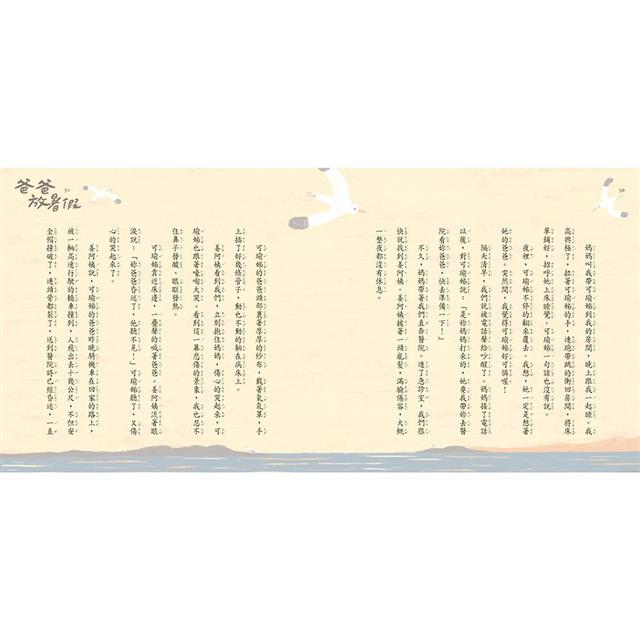 30
媽媽叫我帶可瑜姊到我的房間，晚上跟我一起睡。我
高興極了，拉著可瑜姊的手，連跑帶跳的衝回房間，將床
單鋪好，招呼她上床睡覺。可瑜姊一句話也沒有說。
夜裡，可瑜姊不停的翻來覆去。我想，她一定是想著
她的爸爸。突然間，我覺得可瑜姊好可憐喔！
隔天清早，我們就被電話聲給吵醒了。媽媽接了電話
以後，對可瑜姊說：「是妳媽媽打來的，她要我帶妳去醫
院看妳爸爸，快去準備一下！」
不久，媽媽帶著我們直奔醫院。進了急診室，我們很
快就找到姜阿姨。姜阿姨披著一頭亂髮，滿臉倦容，大概
一整夜都沒有休息。
可瑜姊的爸爸頭部裹著厚厚的紗布，戴著氧氣罩，手
上插了好幾條管子，動也不動的躺在病床上。
姜阿姨看到我們，立刻抱住媽媽，傷心的哭起來，可
瑜姊也跟著嚎啕大哭。看到這一幕悲傷的景象，我也忍不
住鼻子發酸、眼眶發熱。
可瑜姊靠近床邊，一聲聲的喊著爸爸。姜阿姨流著眼
淚說：「妳爸爸昏迷了，他聽不見！」可瑜姊聽了，又傷
心的哭起來了。
姜阿姨說，可瑜姊的爸爸昨晚騎機車在回家的路上，
被一輛高速行駛的轎車撞到，人飛出去十幾公尺，不但安
全帽撞破了，連頭骨都裂了，送到醫院時已經昏迷，一直
31
爸爸放暑假